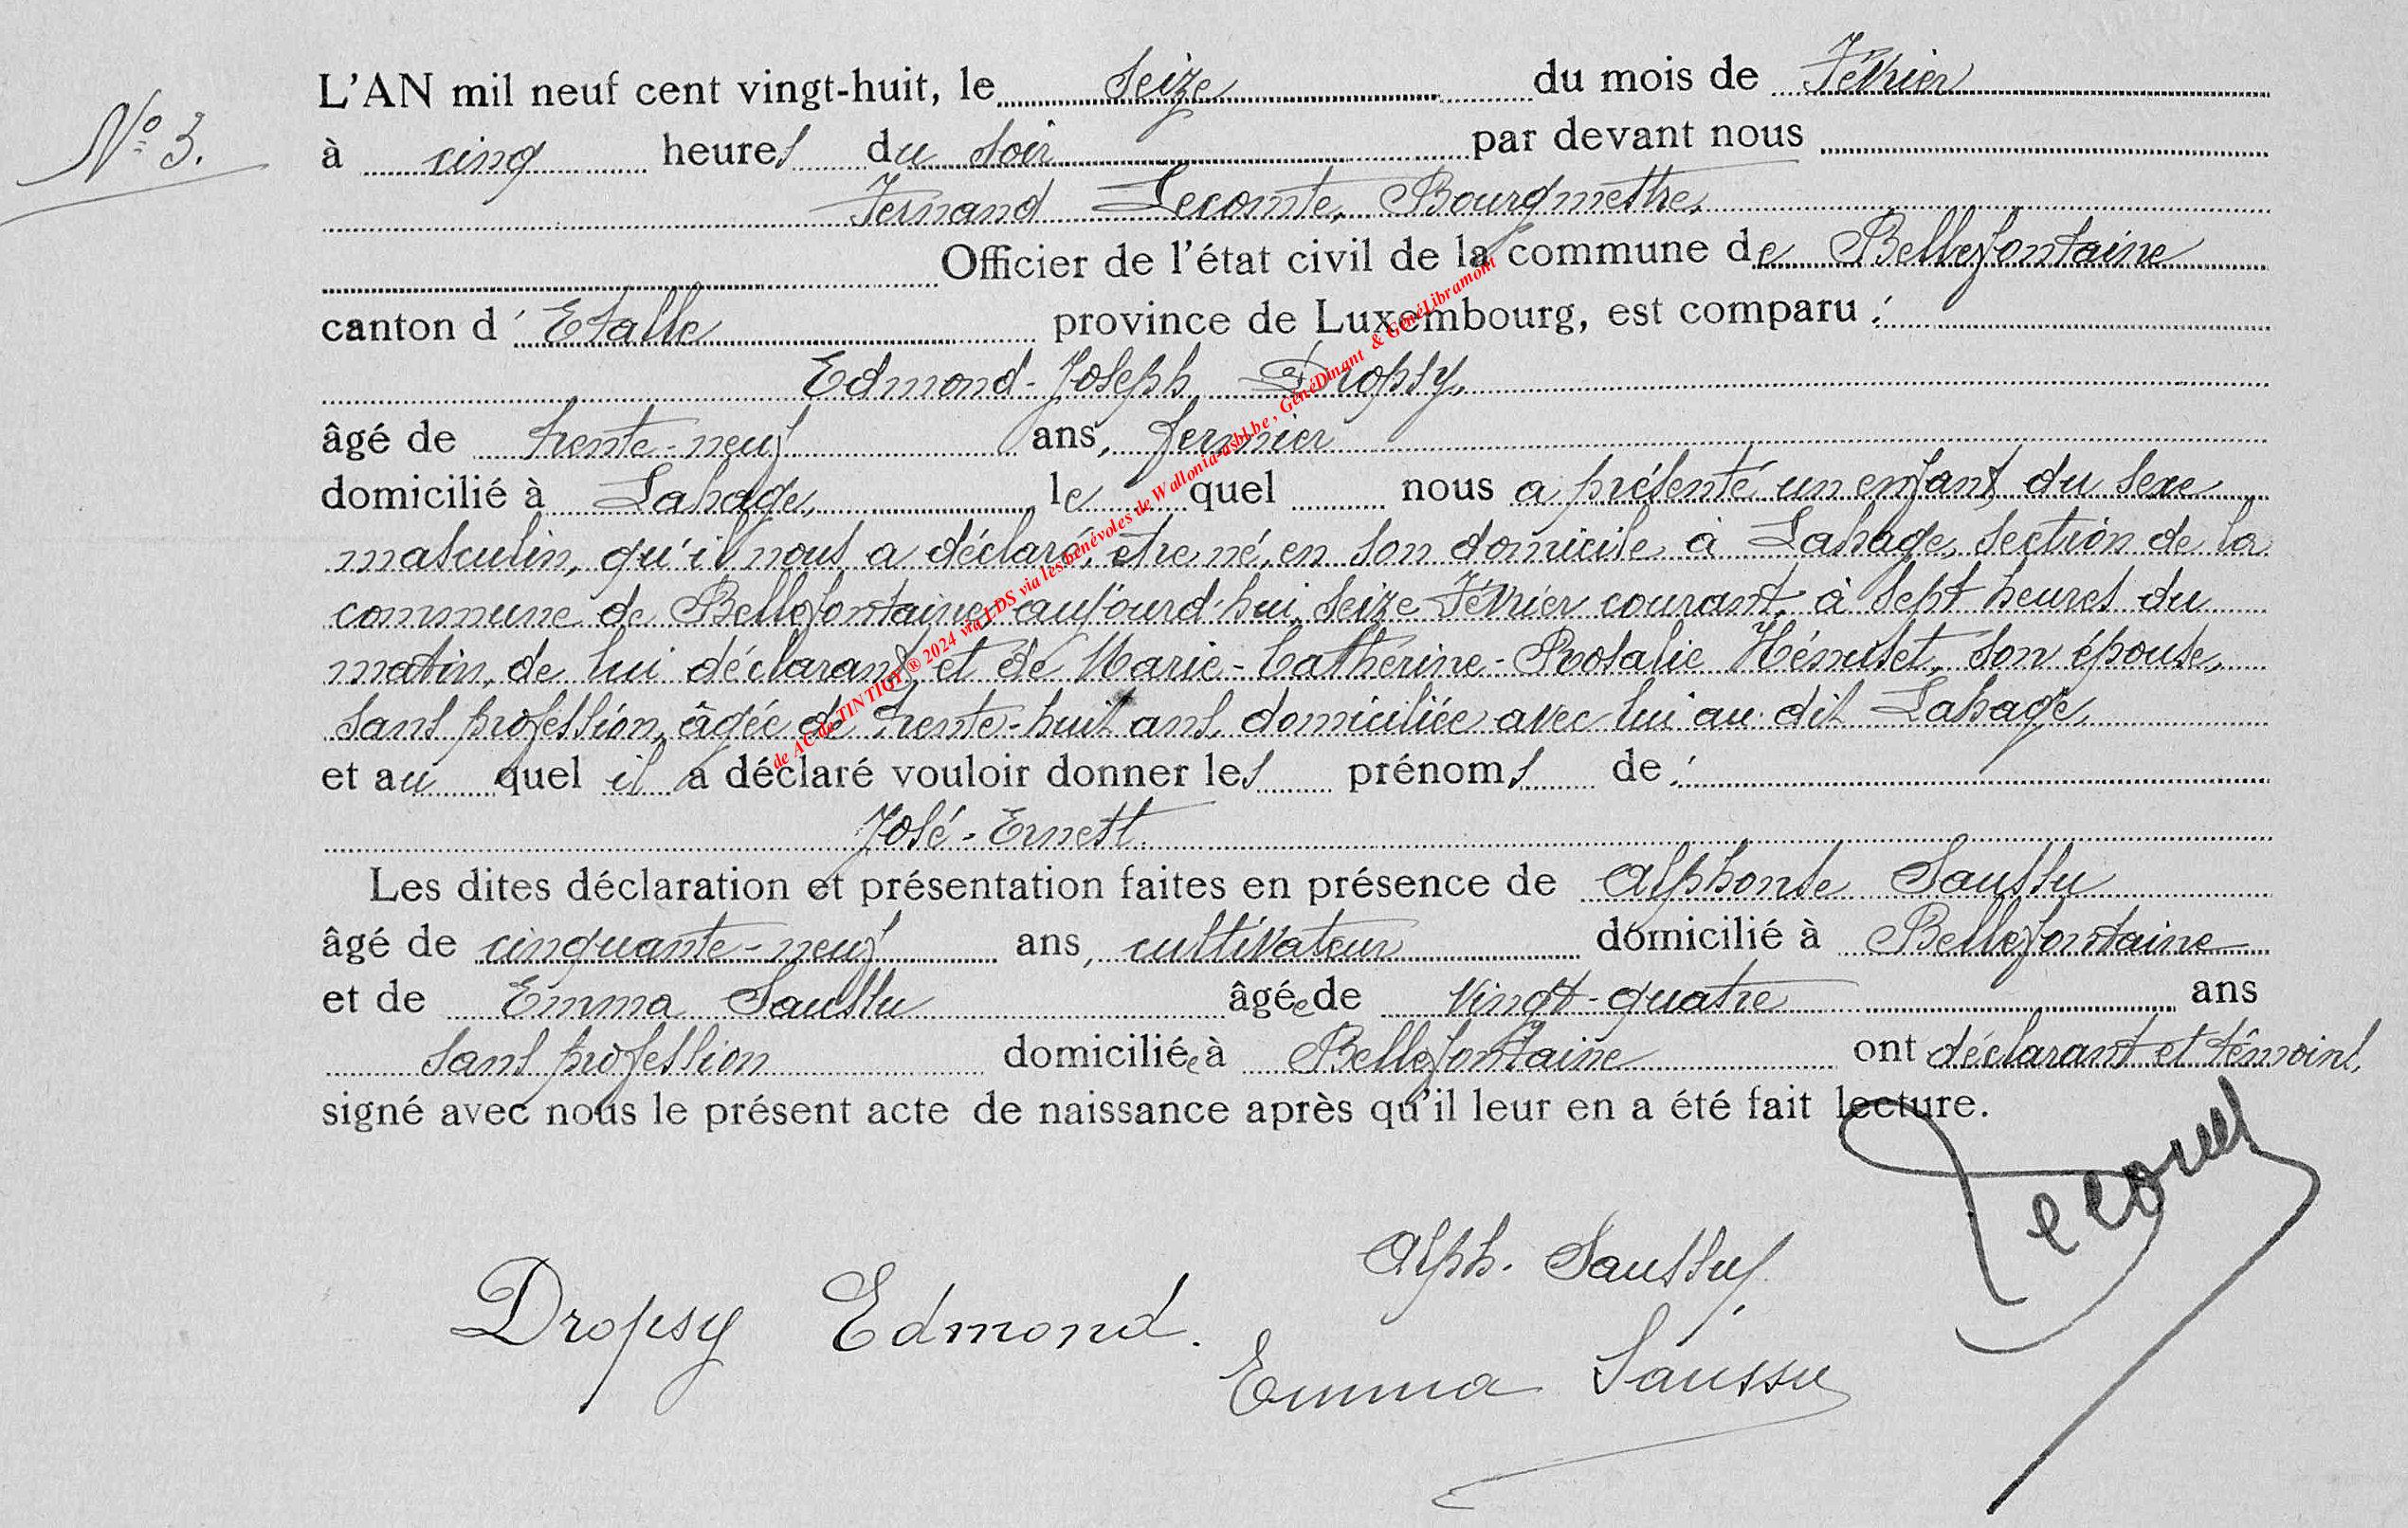 L'AN mil neuf cent vingt-huit, le seize du mois de Février
N° 3.
à cinq heures du soir par devant nous
Fernand Lecomte, Bourgmettre,
Officier de l'état civil de la commune de Bellefontaine
canton d'Etalle province de Luxembourg, est comparu :
Edmond-Joseph Dropsy,
âgé de trente-neuf ans, fermier
domicilié à Lahage, le quel nous a présenté un enfant du sexe
masculin, qu'il nous a déclaré, etre né, en son domicile à Lahage, section de la
commune de Bellefontaine, aujourd'hui, seize Février courant, à sept heures du
matin, de lui déclarant, et de Marie-Catherine-Rosalie Hénuset, son épouse,
sans profession, âgée de trente-huit ans, domiciliée avec lui au dit Lahage,
et au quel il a déclaré vouloir donner les prénoms de :
José-Ernest
Les dites déclaration et présentation faites en présence de Alphonse Saussu
âgé de cinquante-neuf ans, cultivateur domicilié à Bellefontaine
et de Emma Saussu âgée de vingt-quatre ans
sans profession domiciliée à Bellefontaine ont déclarant et témoins,
signé avec nous le présent acte de naissance après qu'il leur en a été fait lecture.
Alph. Saussu
Dropsy Edmond.
Emma Saussu
de AC de TINTIGY ® 2024 via LDS via les bénévoles de Wallonia-asbl.be, GénéDinant & GénéLibramont